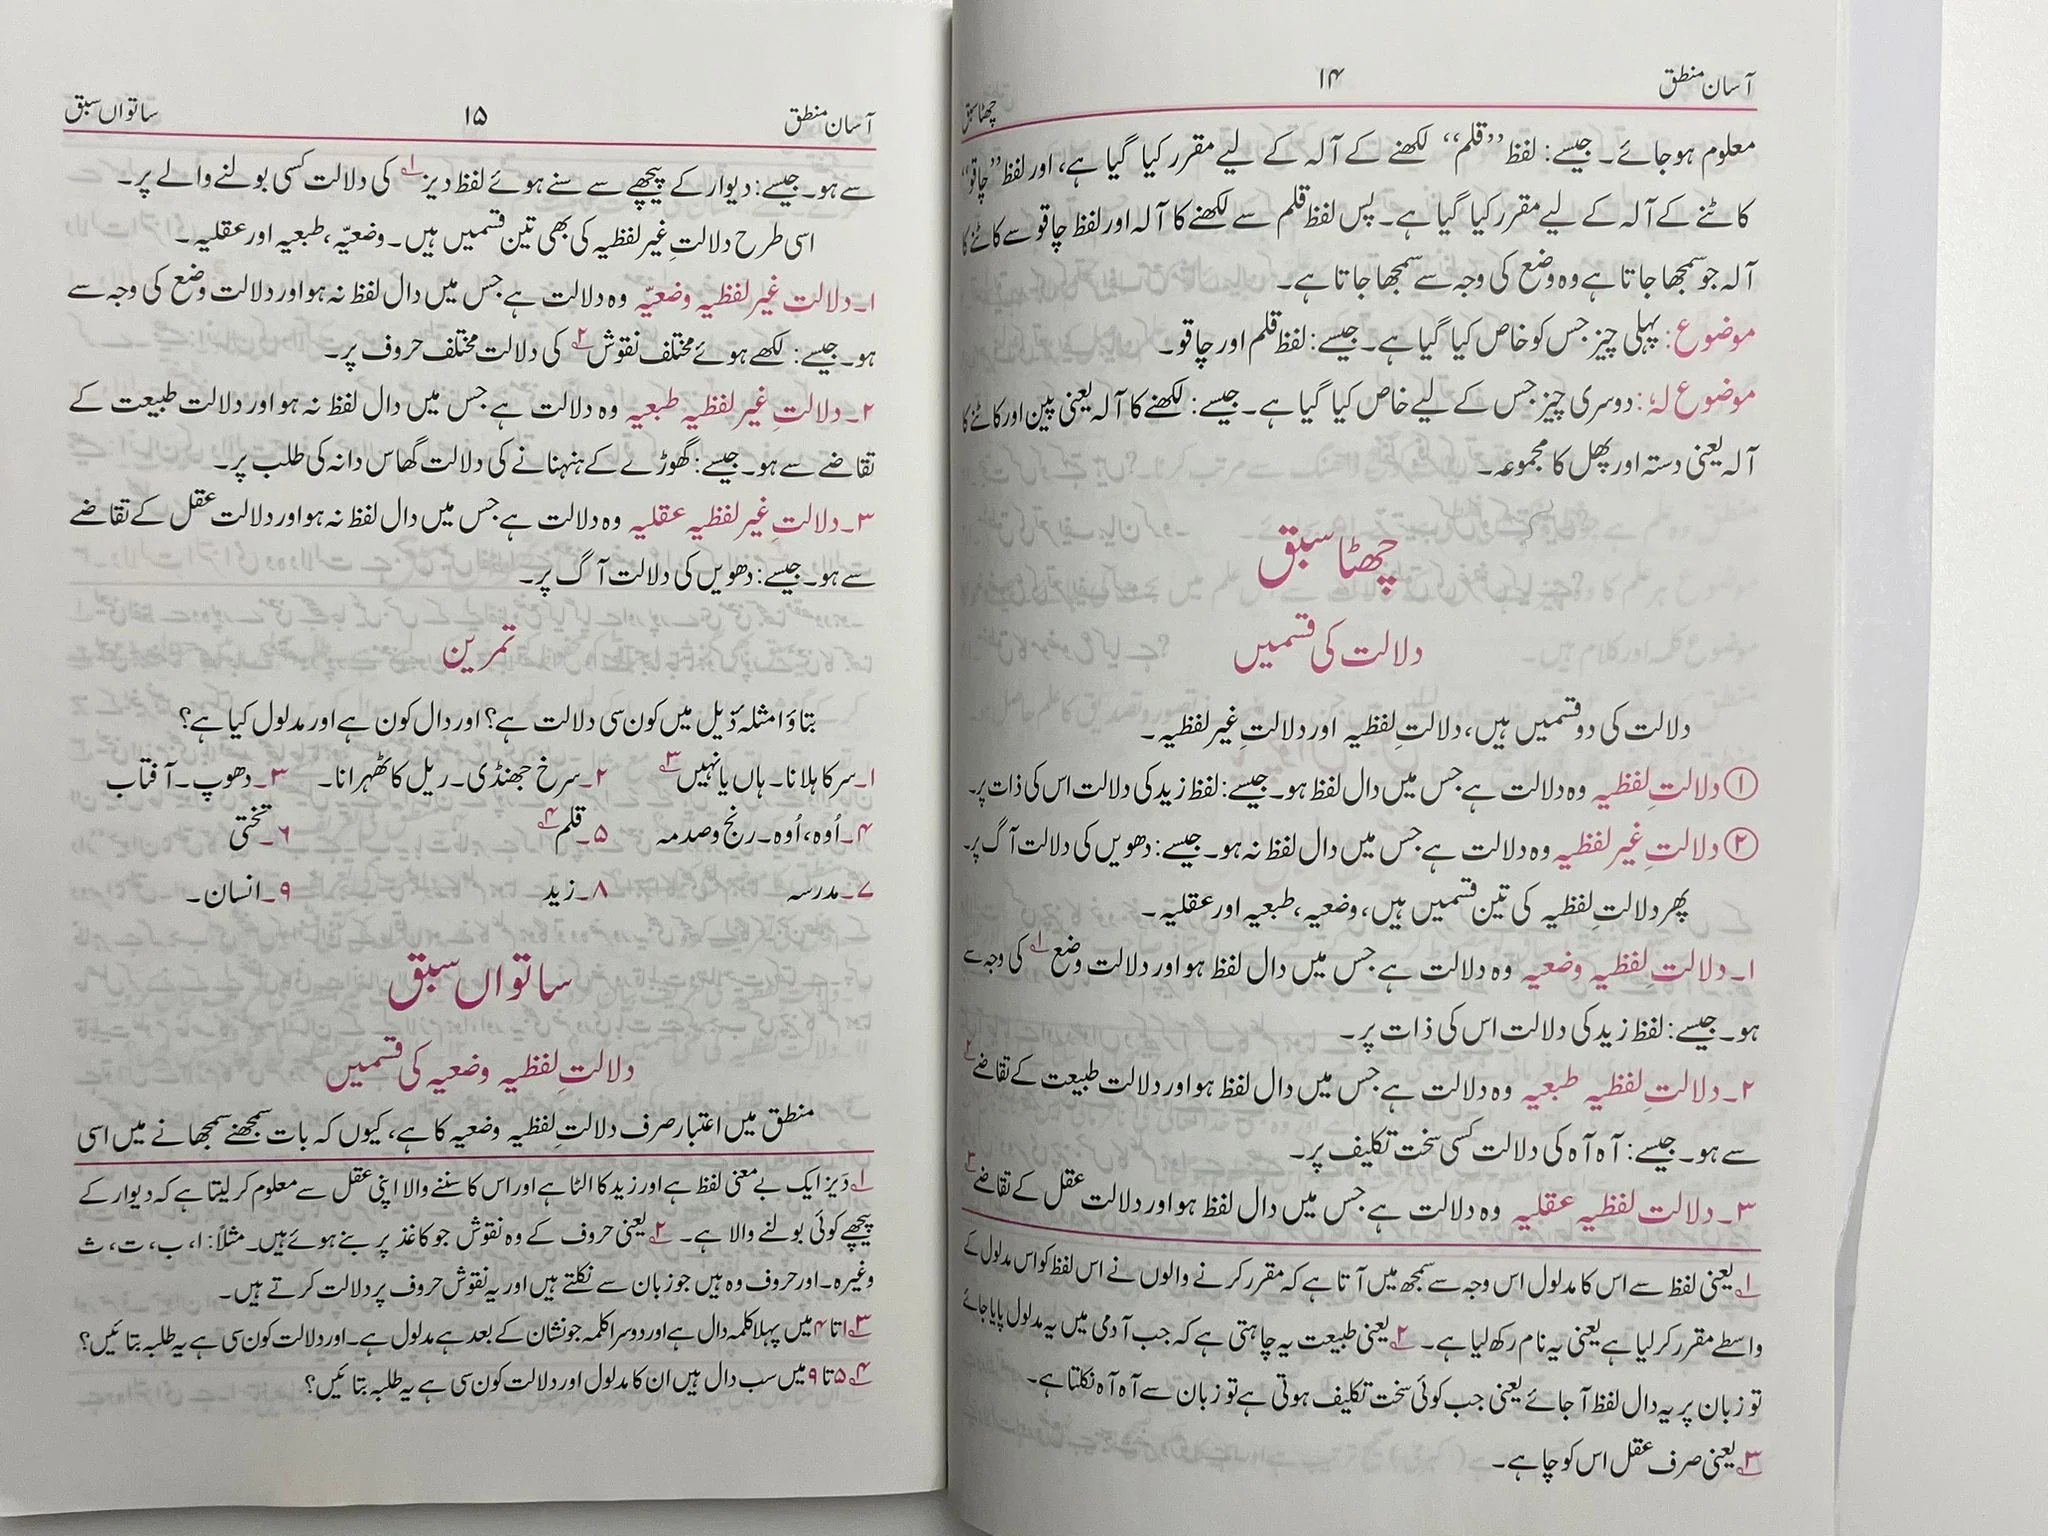 آسان منطق ۱۴ چھٹا سبق
معلوم ہوجائے۔ جیسے: لفظ ’’قلم‘‘ لکھنے کے آلہ کے لیے مقرر کیا گیا ہے، اور لفظ ’’چاقو‘‘
کاٹنے کے آلہ کے لیے مقرر کیا گیا ہے۔ پس لفظ قلم سے لکھنے کا آلہ اور لفظ چاقو سے کاٹنے کا
آلہ جو سمجھا جاتا ہے وہ وضع کی وجہ سے سمجھا جاتا ہے۔
موضوع: پہلی چیز جس کو خاص کیا گیا ہے۔ جیسے: لفظ قلم اور چاقو۔
موضوع لہٗ: دوسری چیز جس کے لیے خاص کیا گیا ہے۔ جیسے: لکھنے کا آلہ یعنی پین اور کاٹنے کا
آلہ یعنی دستہ اور پھل کا مجموعہ۔
چھٹا سبق
دلالت کی قسمیں
دلالت کی دو قسمیں ہیں، دلالتِ لفظیہ اور دلالتِ غیر لفظیہ۔
① دلالتِ لفظیہ وہ دلالت ہے جس میں دال لفظ ہو۔ جیسے: لفظ زید کی دلالت اس کی ذات پر۔
② دلالتِ غیر لفظیہ وہ دلالت ہے جس میں دال لفظ نہ ہو۔ جیسے: دھویں کی دلالت آگ پر۔
پھر دلالتِ لفظیہ کی تین قسمیں ہیں، وضعیہ، طبعیہ اور عقلیہ۔
۱۔ دلالتِ لفظیہ وضعیہ وہ دلالت ہے جس میں دال لفظ ہو اور دلالت وضع ۱؎ کی وجہ سے
ہو۔ جیسے: لفظ زید کی دلالت اس کی ذات پر۔
۲۔ دلالتِ لفظیہ طبعیہ وہ دلالت ہے جس میں دال لفظ ہو اور دلالت طبیعت کے تقاضے ۲؎
سے ہو۔ جیسے: آہ آہ کی دلالت کسی سخت تکلیف پر۔
۳۔ دلالتِ لفظیہ عقلیہ وہ دلالت ہے جس میں دال لفظ ہو اور دلالت عقل کے تقاضے ۳؎
۱؎ یعنی لفظ سے اس کا مدلول اس وجہ سے سمجھ میں آتا ہے کہ مقرر کرنے والوں نے اس لفظ کو اس مدلول کے
واسطے مقرر کرلیا ہے یعنی یہ نام رکھ لیا ہے۔ ۲؎ یعنی طبیعت یہ چاہتی ہے کہ جب آدمی میں یہ مدلول پایا جائے
تو زبان پر یہ دال لفظ آجائے یعنی جب کوئی سخت تکلیف ہوتی ہے تو زبان سے آہ آہ نکلتا ہے۔
۳؎ یعنی صرف عقل اس کو چاہے۔
آسان منطق ۱۵ ساتواں سبق
سے ہو۔ جیسے: دیوار کے پیچھے سے سنے ہوئے لفظ دیز ۱؎ کی دلالت کسی بولنے والے پر۔
اسی طرح دلالتِ غیر لفظیہ کی بھی تین قسمیں ہیں۔ وضعیّہ، طبعیہ اور عقلیہ۔
۱۔ دلالتِ غیر لفظیہ وضعیّہ وہ دلالت ہے جس میں دال لفظ نہ ہو اور دلالت وضع کی وجہ سے
ہو۔ جیسے: لکھے ہوئے مختلف نقوش ۲؎ کی دلالت مختلف حروف پر۔
۲۔ دلالتِ غیر لفظیہ طبعیہ وہ دلالت ہے جس میں دال لفظ نہ ہو اور دلالت طبیعت کے
تقاضے سے ہو۔ جیسے: گھوڑے کے ہنہنانے کی دلالت گھاس دانہ کی طلب پر۔
۳۔ دلالتِ غیر لفظیہ عقلیہ وہ دلالت ہے جس میں دال لفظ نہ ہو اور دلالت عقل کے تقاضے
سے ہو۔ جیسے: دھویں کی دلالت آگ پر۔
تمرین
بتاؤ امثلہ ذیل میں کون سی دلالت ہے؟ اور دال کون ہے اور مدلول کیا ہے؟
۱۔ سر کا ہلانا۔ ہاں یا نہیں ۳؎ ۲۔ سرخ جھنڈی۔ ریل کا ٹھہرانا۔ ۳۔ دھوپ۔ آفتاب
۴۔ اُوہ، اُوہ۔ رنج و صدمہ ۵۔ قلم ۴؎ ۶۔ تختی
۷۔ مدرسہ ۸۔ زید ۹۔ انسان۔
ساتواں سبق
دلالتِ لفظیہ وضعیہ کی قسمیں
منطق میں اعتبار صرف دلالتِ لفظیہ وضعیہ کا ہے، کیوں کہ بات سمجھنے سمجھانے میں اسی
۱؎ دَیز ایک بے معنی لفظ ہے اور زید کا الٹا ہے اور اس کا سننے والا اپنی عقل سے معلوم کرلیتا ہے کہ دیوار کے
پیچھے کوئی بولنے والا ہے۔ ۲؎ یعنی حروف کے وہ نقوش جو کاغذ پر بنے ہوئے ہیں۔ مثلاً: ا، ب، ت، ث
وغیرہ۔ اور حروف وہ ہیں جو زبان سے نکلتے ہیں اور یہ نقوش حروف پر دلالت کرتے ہیں۔
۳؎ ۱ تا ۴ میں پہلا کلمہ دال ہے اور دوسرا کلمہ جو نشان کے بعد ہے مدلول ہے۔ اور دلالت کون سی ہے یہ طلبہ بتائیں؟
۴؎ ۵ تا ۹ میں سب دال ہیں ان کا مدلول اور دلالت کون سی ہے یہ طلبہ بتائیں؟